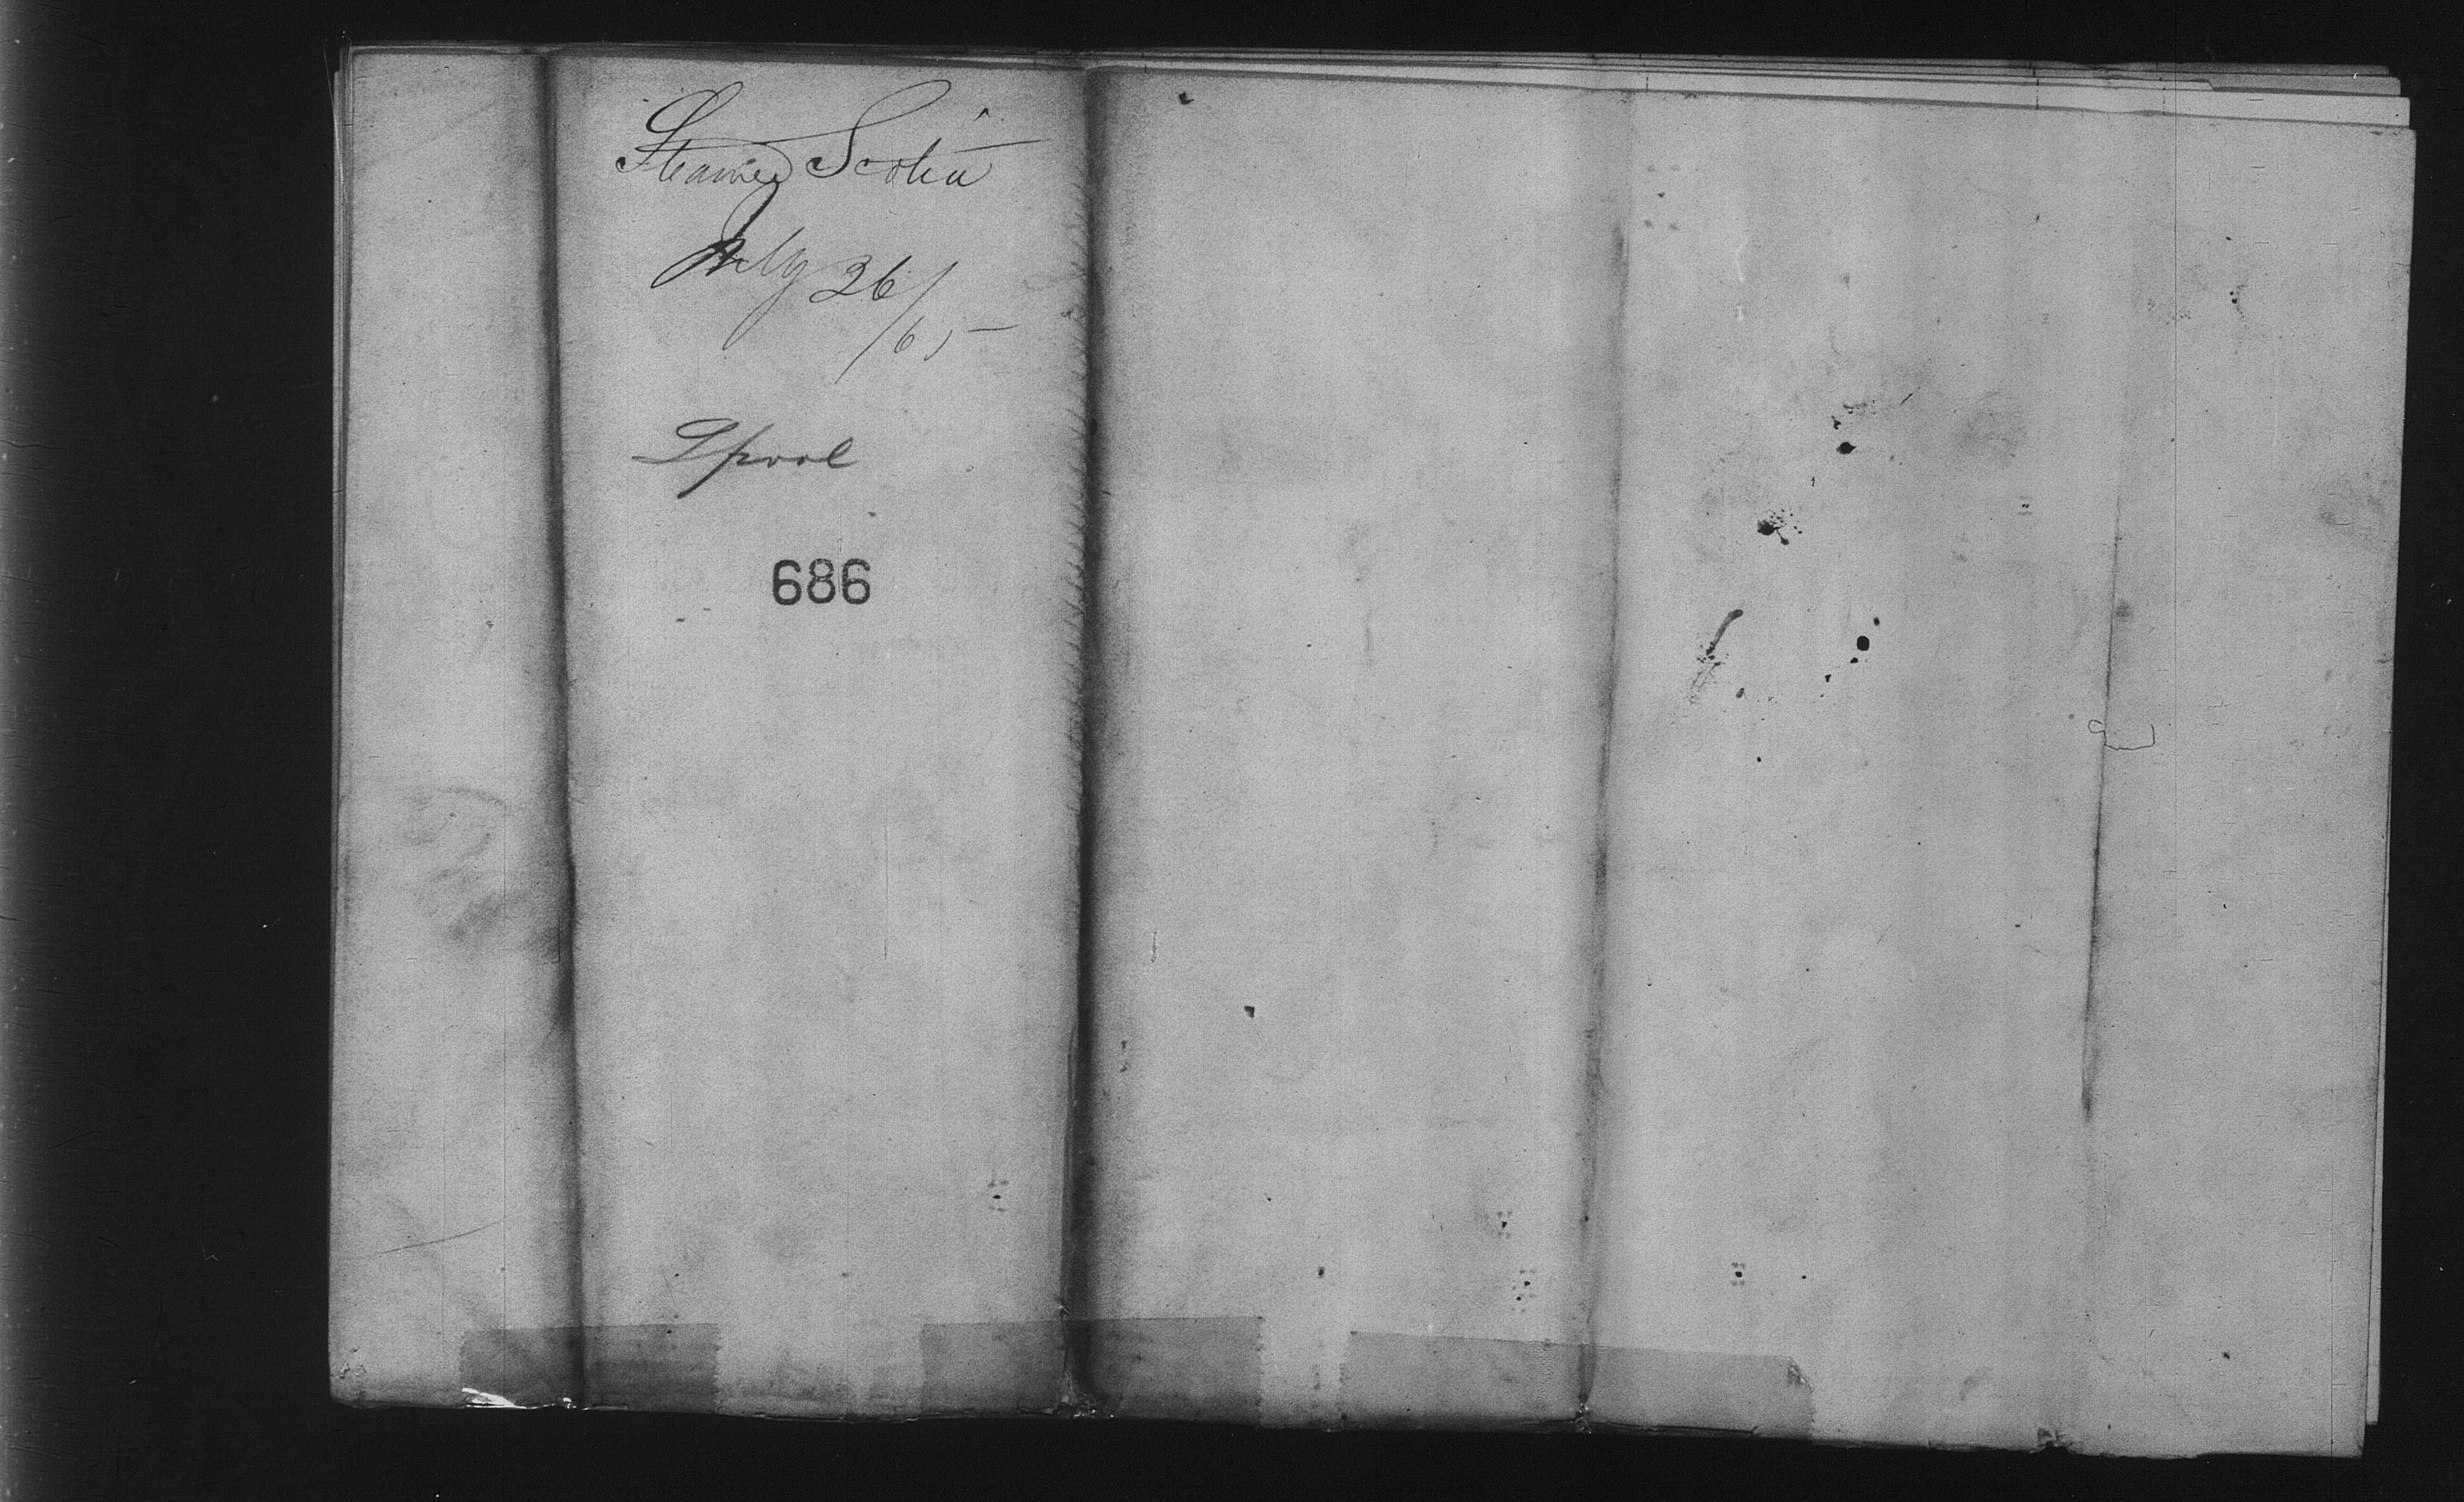 Steamer Scotia
July 26/
/65
Lpool
686